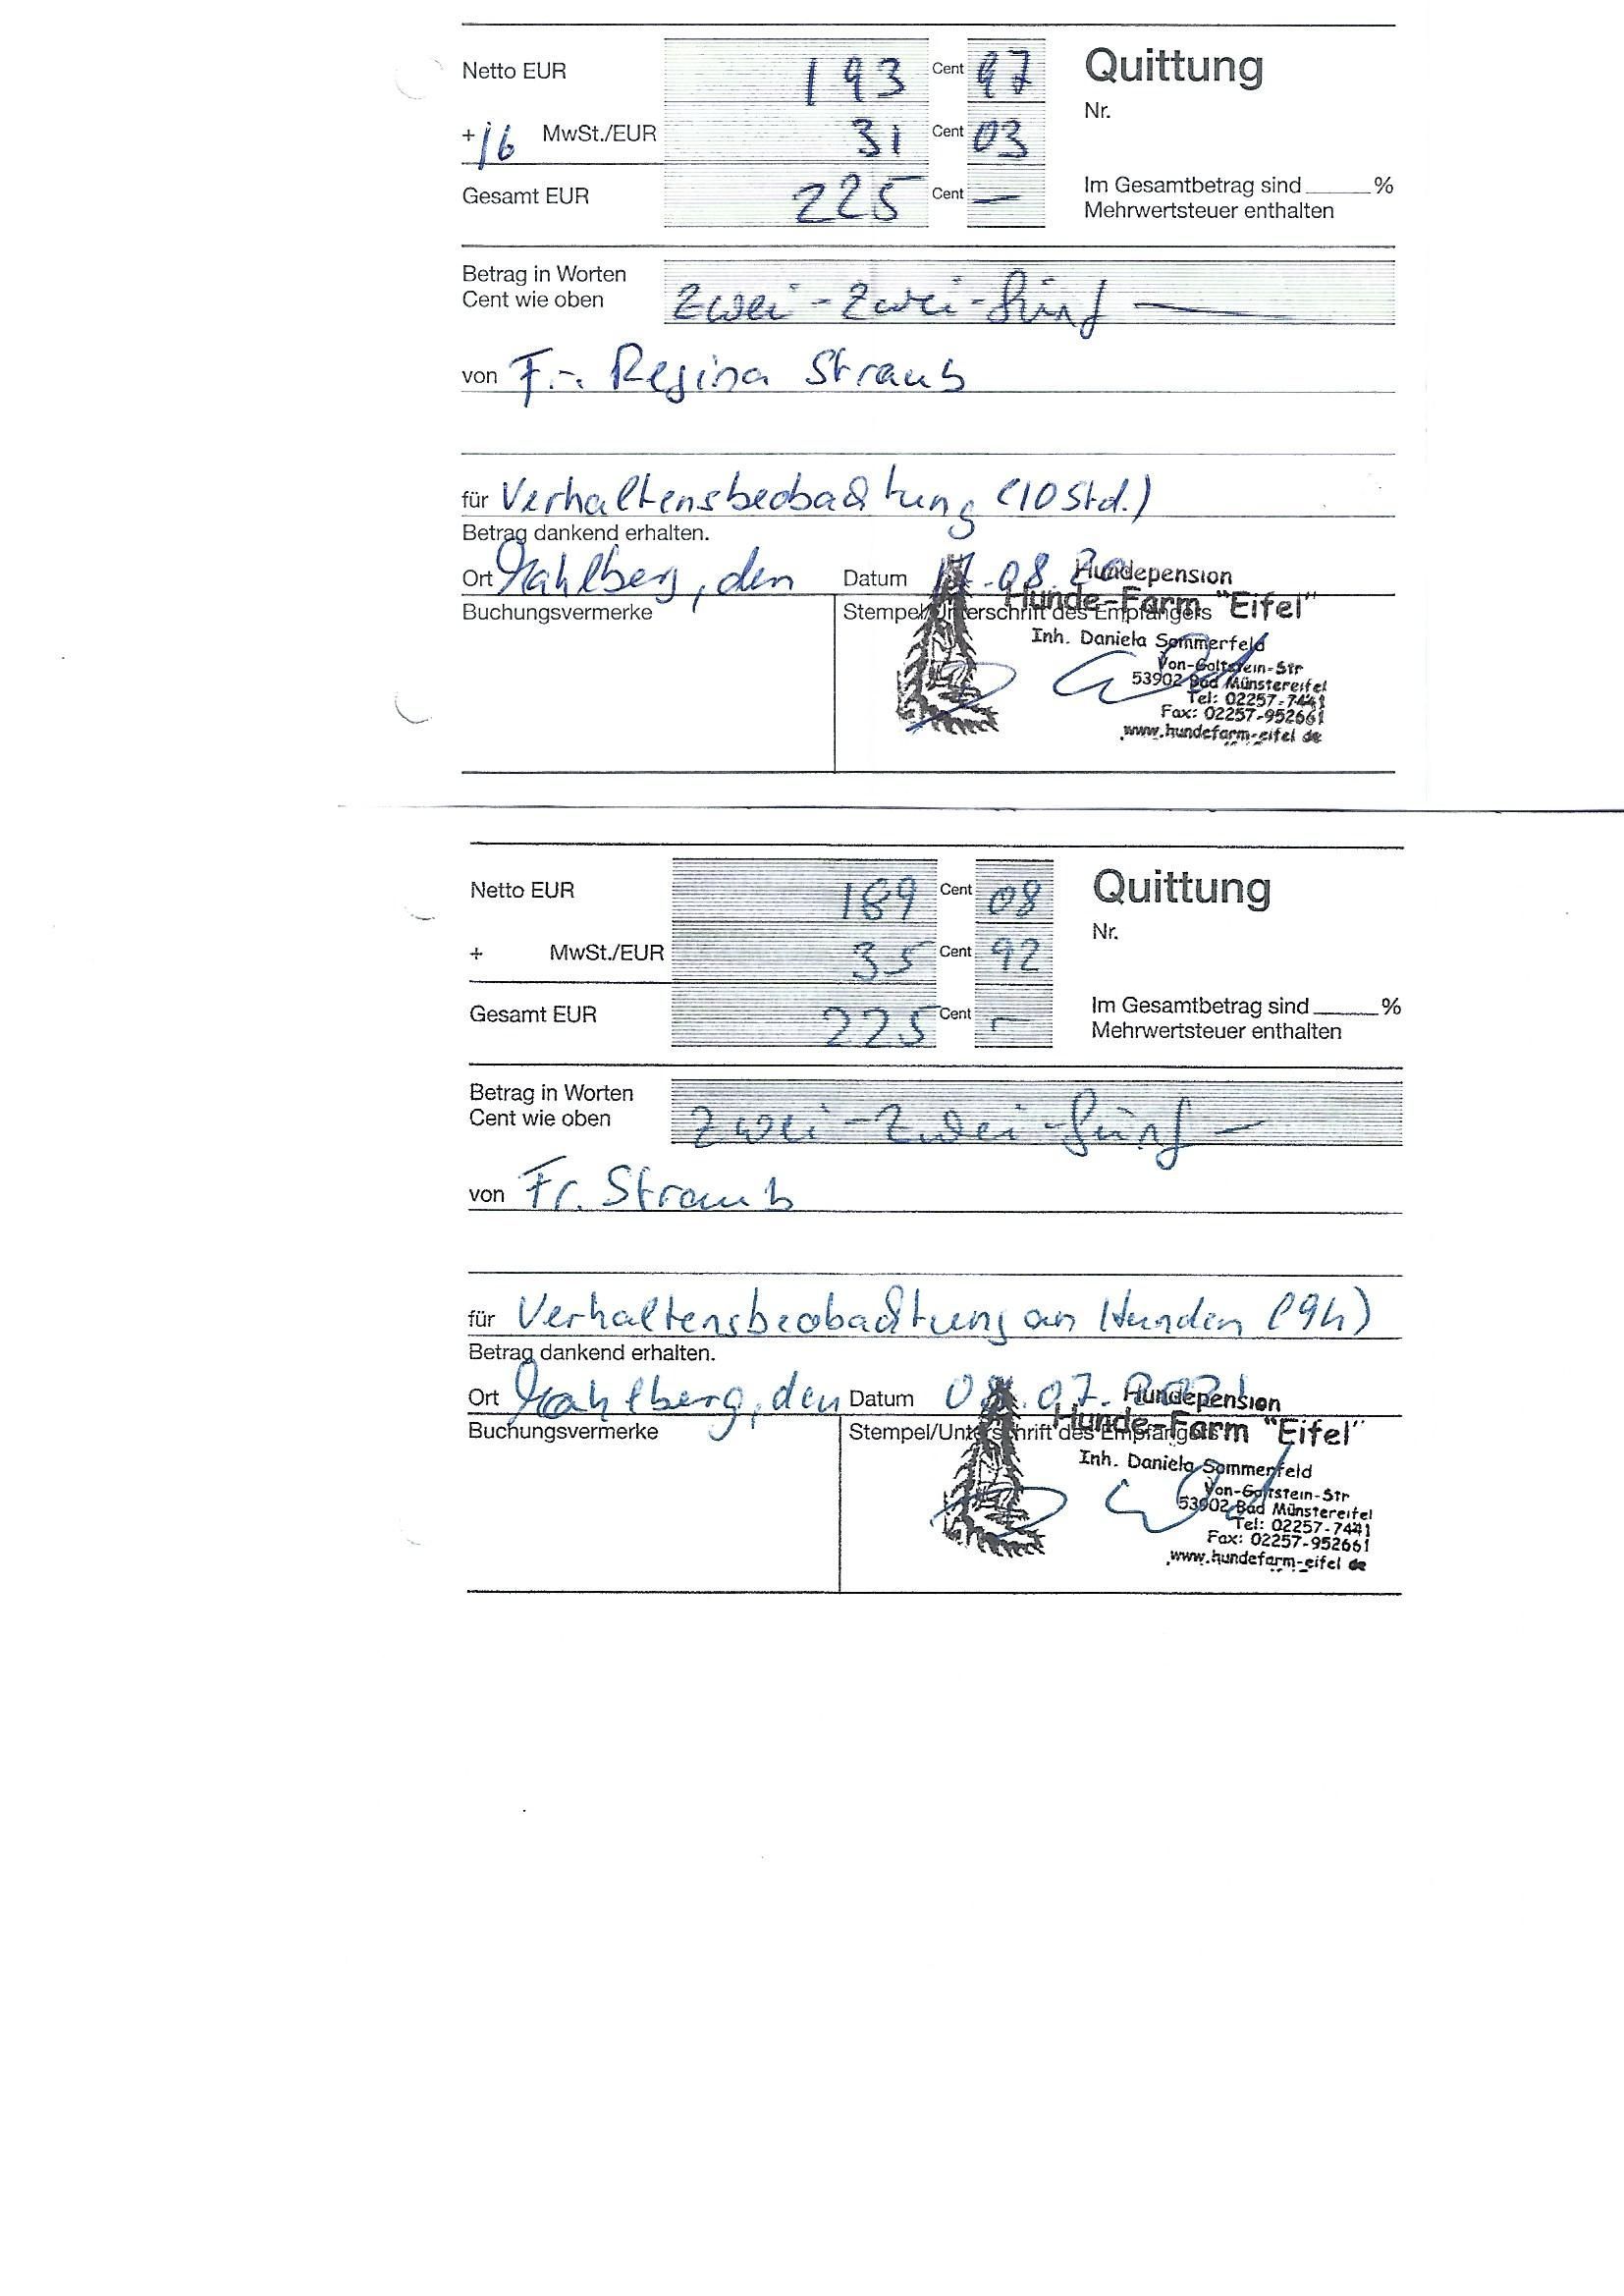 Netto EUR 193 Cent 97 Quittung
Nr.
+ 16 MwSt./EUR 31 Cent 03
Gesamt EUR 225 Cent — Im Gesamtbetrag sind ______ %
Mehrwertsteuer enthalten
Betrag in Worten
Cent wie oben Zwei-Zwei-fünf —
von Fr. Regina Straub
für Verhaltensbeobachtung (10 Std.)
Betrag dankend erhalten.
Ort Mahlberg, den Datum .08.20
Hundepension
Buchungsvermerke Stempel/Unterschrift des Empfängers
Hunde-Farm "Eifel"
Inh. Daniela Sommerfeld
Von-Goltstein-Str
53902 Bad Münstereifel
Tel: 02257-7441
Fax: 02257-952661
www.hundefarm-eifel de
Netto EUR 189 Cent 08 Quittung
Nr.
+ MwSt./EUR 35 Cent 92
Gesamt EUR 225 Cent — Im Gesamtbetrag sind ______ %
Mehrwertsteuer enthalten
Betrag in Worten
Cent wie oben Zwei-Zwei-fünf —
von Fr. Straub
für Verhaltensbeobachtung an Hunden (9h)
Betrag dankend erhalten.
Ort Mahlberg, den Datum .07.2021
Hundepension
Buchungsvermerke Stempel/Unterschrift des Empfängers
Hunde-Farm "Eifel"
Inh. Daniela Sommerfeld
Von-Goltstein-Str
53902 Bad Münstereifel
Tel: 02257-7441
Fax: 02257-952661
www.hundefarm-eifel de